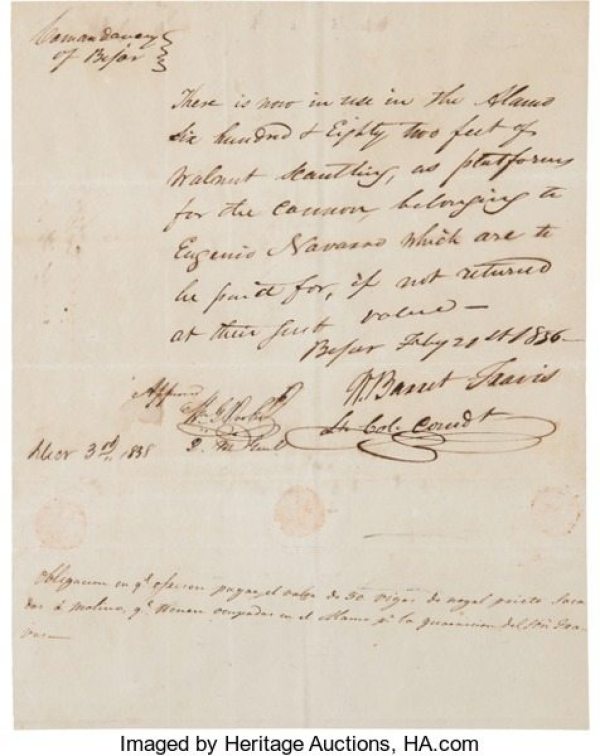 Comandancy
of Bejar
There is now in use in the Alamo
six hundred & Eighty two feet of
Walnut Scantling, as platforms
for the Cannon, belonging to
Eugenio Navarro which are to
be paid for, if not returned
at their just value—
Bejar Feby 21st 1836—
W. Barret Travis
Lt. Col. Comdt
Approved
Nov 3rd 1838
Q. M. Genl
obligacion en qe ofrecen pagar el valor de 50 vigas de nogal prieto saca
das á molino, qe tienen ocupadas en el Alamo pr la guarnicion del Sor Tra
vis—
Imaged by Heritage Auctions, HA.com